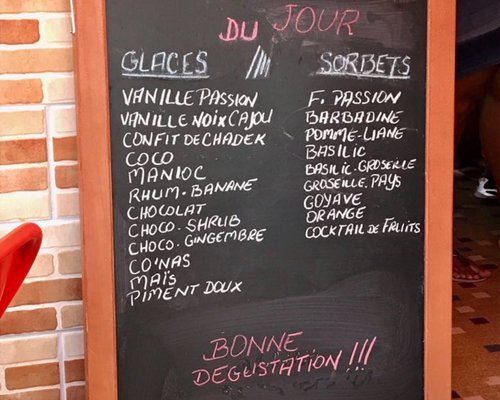 DU JOUR
GLACES
VANILLE PASSION
VANILLE NOIX CAJOU
CONFIT DE CHADEK
COCO
MANIOC
RHUM-BANANE
CHOCOLAT
CHOCO-SHRUB
CHOCO-GINGEMBRE
CO'NAS
MAÏS
PIMENT DOUX
SORBETS
F. PASSION
BARBADINE
POMME-LIANE
BASILIC
BASILIC-GROSEILLE
GROSEILLE-PAYS
GOYAVE
ORANGE
COCKTAIL DE FRUITS
BONNE
DEGUSTATION!!!